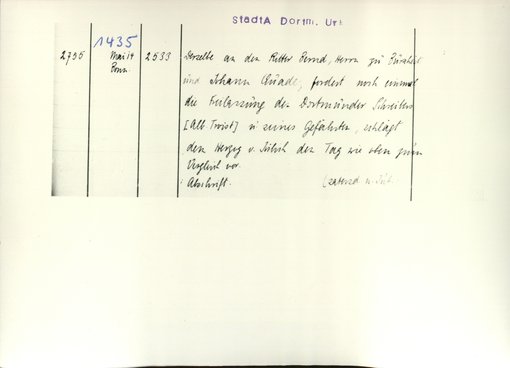 StadtA Dortm. Urk
1435
2755 Mai 14 2533 Derselbe an den Ritter Bernd, Herrn zu
Bonn. und Johann Quade, fordert noch einmal
die Freilassung des Dortmunder Schreibers
[Alb. Twist] u seines Gefährten, schlägt
den Herzog v. Jülich den Tag wie oben zum
Vergleich vor.
Abschrift.